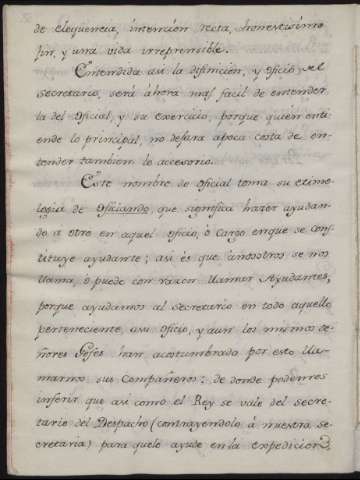 de eloqüencia, intencion recta, honestisimo
fin, y una vida irreprensible.
Entendida asi la difinicion, y oficio, del
secretario, será ahora mas facil de entender
la del Oficial, y su exercicio, porque quien enti-
ende lo principal, no dejara apoca costa de en-
tender tambien lo accesorio.
Este nombre de oficial toma su etimo-
logia de oficiando, que significa hazer ayudan-
do a otro en aquel oficio, ò cargo, enque se cons-
tituye ayudante; asi és que ànosotros se nos
llama, ò puede con razon llamar Ayudantes,
porque ayudamos al secretario en todo aquello
perteneciente, asu Oficio, y aun los mismos Se-
ñores Gefes han acostumbrado por esto lla-
marnos sus Compañeros: de donde podemos
inferir, que asi como el Rey se vale del secre-
tario del Despacho (contrayendolo à nuestra se-
cretaria) para quele ayude en la expedicion